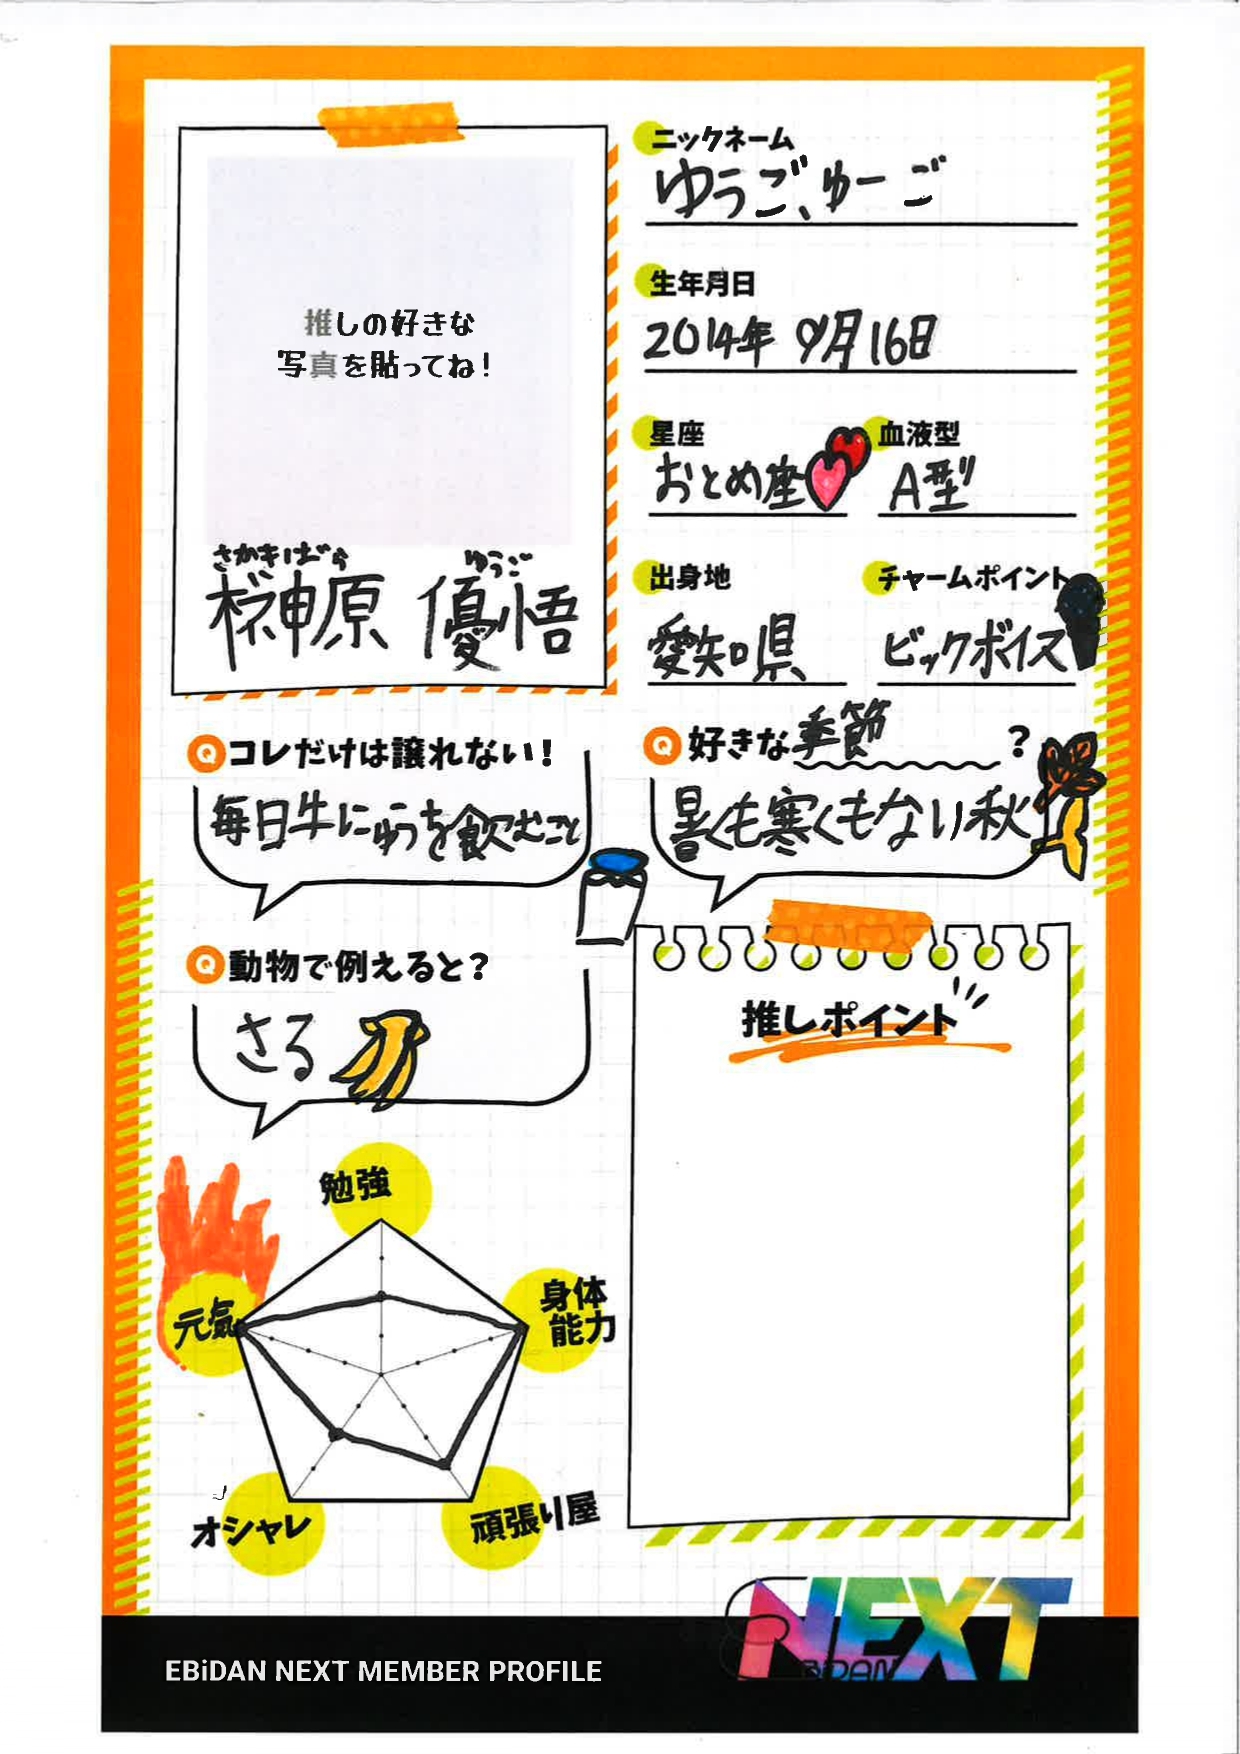 推しの好きな
写真を貼ってね!
さかきばら ゆうご
榊原 優悟
ニックネーム
ゆうご、ゆーご
生年月日
2014年 9月16日
星座
おとめ座
血液型
A型
出身地
愛知県
チャームポイント
ビックボイス
Q コレだけは譲れない!
毎日牛にゅうを飲むこと
Q 好きな季節?
暑くも寒くもない秋
Q 動物で例えると?
さる
推しポイント
勉強
身体
能力
頑張り屋
オシャレ
元気
EBiDAN NEXT MEMBER PROFILE
EBiDAN NEXT